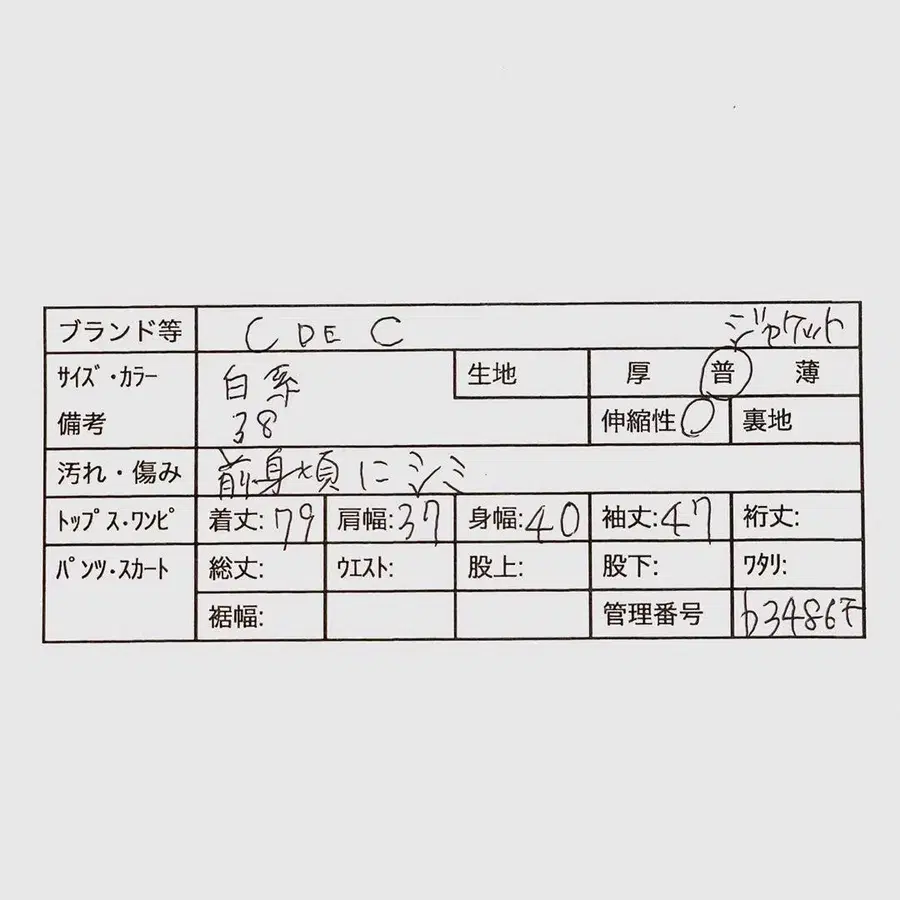 ブランド等 C DE C ジャケット
サイズ・カラー 白系 生地 厚 普 薄
備考 38 伸縮性 裏地
汚れ・傷み 前身頃にシミ
トップス・ワンピ 着丈:79 肩幅:37 身幅:40 袖丈:47 裄丈:
パンツ・スカート 総丈: ウエスト: 股上: 股下: ワタリ:
裾幅: 管理番号 b3486千